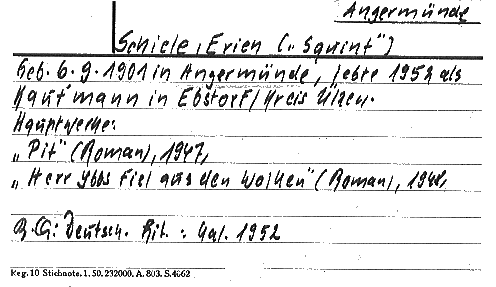 Angermünde
Schiele, Erich („Squint")
Geb. 6.9.1901 in Angermünde, lebte 1952 als
Kaufmann in Ebstorf/Kreis Ülzen.
Hauptwerke:
„Pit" (Roman), 1947,
„Herr Ybbs fiel aus den Wolken" (Roman), 1948,
Deutsch. Lit. 1952
Reg. 10 Stichnote. 1. 50. 232000. A. 803. S. 4662